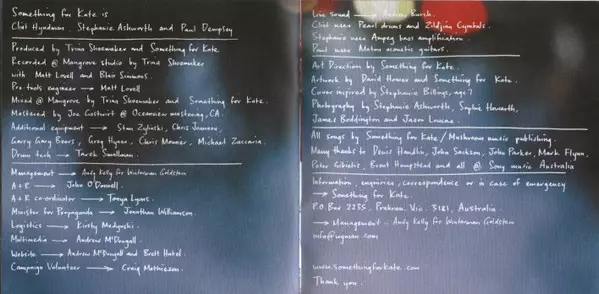 Something for Kate is
Clint Hyndman, Stephanie Ashworth and Paul Dempsey
Produced by Trina Shoemaker and Something for Kate.
Recorded @ Mangrove studio by Trina Shoemaker
with Matt Lovell and Blair Simmons.
Pro tools engineer → Matt Lovell
Mixed @ Mangrove by Trina Shoemaker and Something for Kate.
Mastered by Joe Gastwirt @ Oceanview mastering, CA.
Additional equipment → Stan Zyliski, Chris Jauneau,
Garry Gary Beers, Greg Hyner, Chris Mouner, Michael Zaccaria.
Drum tech → Tarek Smallman.
Management → Andy Kelly for Winterman Goldstein
A + R → John O'Donnell.
A + R co-ordinator → Tonya Lyons.
Minister for Propaganda → Jonathan Williamson.
Logistics → Kirsty Madynski.
Multimedia → Andrew McDougall.
Website → Andrew McDougall and Brett Hotel.
Campaign Volunteer → Craig Mathieson.
Live sound → Andrew Burch.
Clint uses Pearl drums and Zildjian Cymbals.
Stephanie uses Ampeg bass amplification.
Paul uses Maton acoustic guitars.
Art Direction by Something for Kate.
Artwork by David Homer and Something for Kate.
Cover inspired by Stephanie Billings, age 7
Photography by Stephanie Ashworth, Sophie Howarth,
James Boddington and Jason
All songs by Something for Kate / Mushroom music publishing.
Many thanks to Denis Handlin, John Jackson, John Parker, Mark Flynn,
Peter Brent Hampstead and all @ Sony music Australia
Information, enquiries, correspondence or in case of emergency
→ Something for Kate.
P.O Box 2255. Prahran. Vic. 3181, Australia.
→ Management - Andy Kelly for Winterman Goldstein
info@wgman.com
www.somethingforkate.com
Thank you.